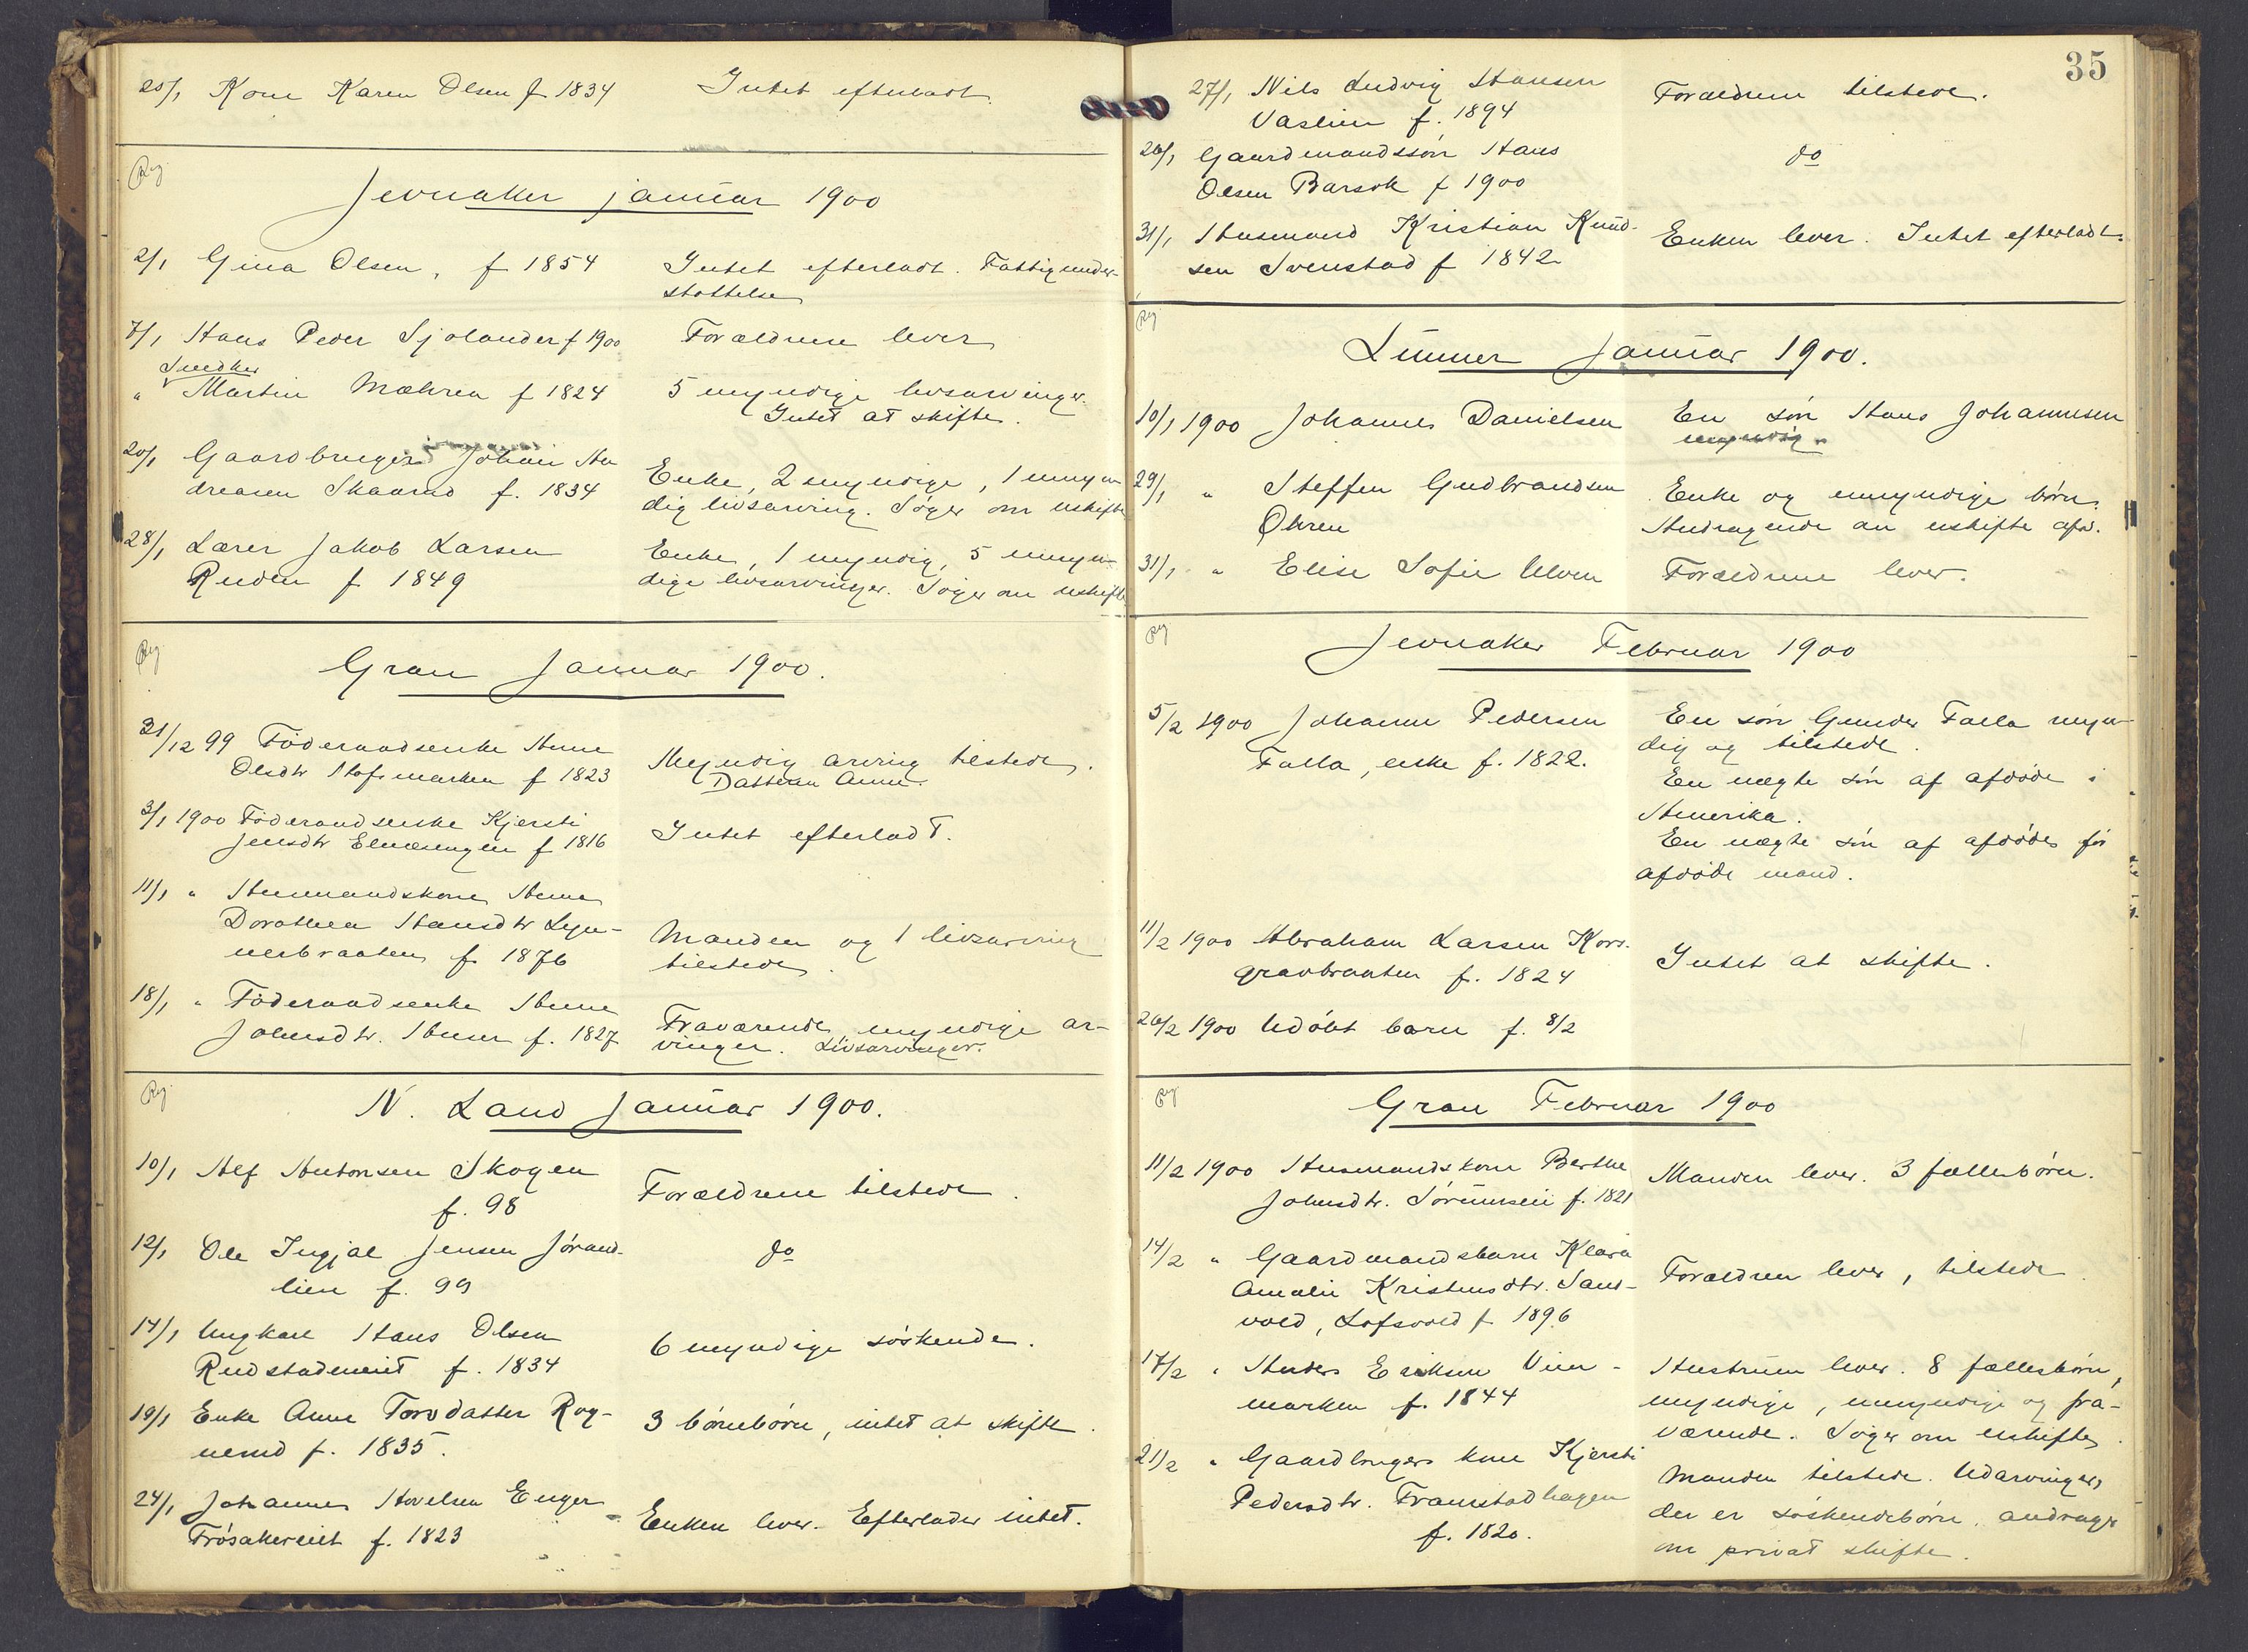 25/1 Kone Karen Olsen f 1834 Intet efterladt.
Reg
Jevnaker januar 1900
2/1 Gina Olsen, f 1854 Intet efterladt. Fattigunder-
støttelse
7/1 Hans Peder Sjølander f 1900 Forældrene lever
Smedker
" Martin Mæhren f 1824 5 myndige livsarvinger.
Intet at skifte.
20/1 Gaardbruger Johan An
dreasen Skaarud f. 1834 Enke, 2 myndige, 1 umyn
dig livsarving. Søger om uskifte
28/1 Lærer Jakob Larsen
Ruden f 1849 Enke, 1 myndig, 5 umyn-
dige livsarvinger. Søger om uskifte
Reg
Gran Januar 1900.
31/12 99 Föderaadsenke Anne
Olsdtr Hofsmarken f 1823 Myndig arving tilstede.
Datteren Anne.
3/1 1900 Föderaadsenke Kjersti
Jensdtr f 1816 Intet efterladt.
11/1 " Husmandskone Anne
Dorothea Hansdtr Lyn-
nesbraaten f. 1876 Manden og 1 livsarving
tilstede.
18/1 " Föderaadsenke Anne
Johnsdtr. f. 1827 Fraværende myndige ar-
vinger. Livsarvinger.
Reg
N. Land Januar 1900.
10/1 Alf Antonsen Skogen
f. 98 Forældrene tilstede.
12/1 Ole Ingjal Jensen Jørand-
lien f. 99 do
14/1 Ungkarl Hans Olsen
Rudstadeneiet f. 1834 6 myndige søskende.
19/1 Enke Anne Torsdatter Rog-
nerud f. 1835. 3 børnebørn, intet at skifte.
24/1 Johannes Hovelsen Enger
Frøsakereiet f. 1823 Enken lever. Efterlader intet.
35
27/1 Nils Ludvig Hansen
Vaslien f. 1894 Forældrene tilstede.
26/1 Gaardmandssøn Hans
Olsen Barsok f 1900 do
31/1 Husmand Kristian Knud-
sen Svenstad f 1842 Enken lever. Intet efterladt.
Reg
Lunner Januar 1900.
10/1 1900 Johannes Danielsen En søn Hans Johannesen
myndig.
29/1 " Steffen Gudbrandsen
Øhren Enke og umyndige børn.
Andragende an uskifte afs.
31/1 " Elise Sofie Ulven Forældrene lever.
Reg
Jevnaker Februar 1900
5/2 1900 Johanne Pedersen
Falla, enke f. 1822. En søn Gunder Falla myn-
dig og tilstede.
En uægte søn af afdøde i
Amerika.
En uægte søn af afdødes før
afdøde mand.
11/2 1900 Abraham Larsen Kors-
gravbraaten f. 1824 Intet at skifte.
26/2 1900 Udøbt barn f. 8/2
Reg
Gran Februar 1900
11/2 1900 Husmandskone Berthe
Johnsdtr. f. 1821 Manden lever. 3 fællesbørn.
14/2 " Gaardmandsbarn Klara
Amalie Kristensdtr. Sand-
vold, Lofsvold f 1896 Forældren lever, tilstede.
17/2 " Anders Eriksen Vien-
marken f. 1844 Hustruen lever. 8 fællesbørn,
myndige, umyndige og fra-
værende. Søger om uskifte.
21/2 " Gaardbrugers kone Kjersti
Pedersdtr. Framstadhagen
f. 1820. Manden tilstede. Udarvinger,
der er søskendebørn, andrager
om privat skifte.